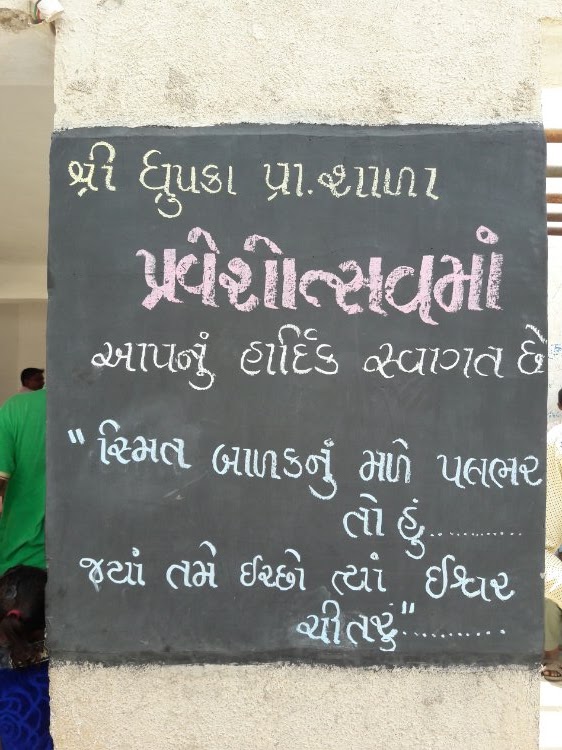 શ્રી ધ્રુપકા પ્રા.શાળા
પ્રવેશોત્સવમાં
આપનું હાર્દિક સ્વાગત છે
"સ્મિત બાળકનું મળે પલભર
તો હું...........
જ્યાં તમે ઈચ્છો ત્યાં ઈશ્વર
ચીતરું"...........